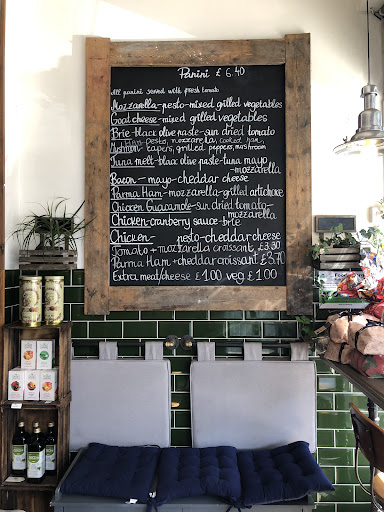 Panini £ 6.40
All panini served with fresh tomato
Mozzarella-pesto-mixed grilled vegetables
Goat cheese-mixed grilled vegetables
Brie-black olive paste-sun dried tomato
Ham-pesto, mozzarella, cooked ham,
Mushroom- capers, grilled peppers, mushroom
Tuna melt-black olive paste-tuna mayo
-mozzarella
Bacon-mayo-cheddar cheese
Parma Ham-mozzarella-grilled artichoke
Chicken Guacamole-sun dried tomato-
mozzarella
Chicken-cranberry sauce-brie
Chicken- pesto-cheddar cheese
Tomato+mozzarella croissant £3.50
Parma Ham+cheddar croissant £3.70
Extra meat/cheese £1.00 veg £1.00